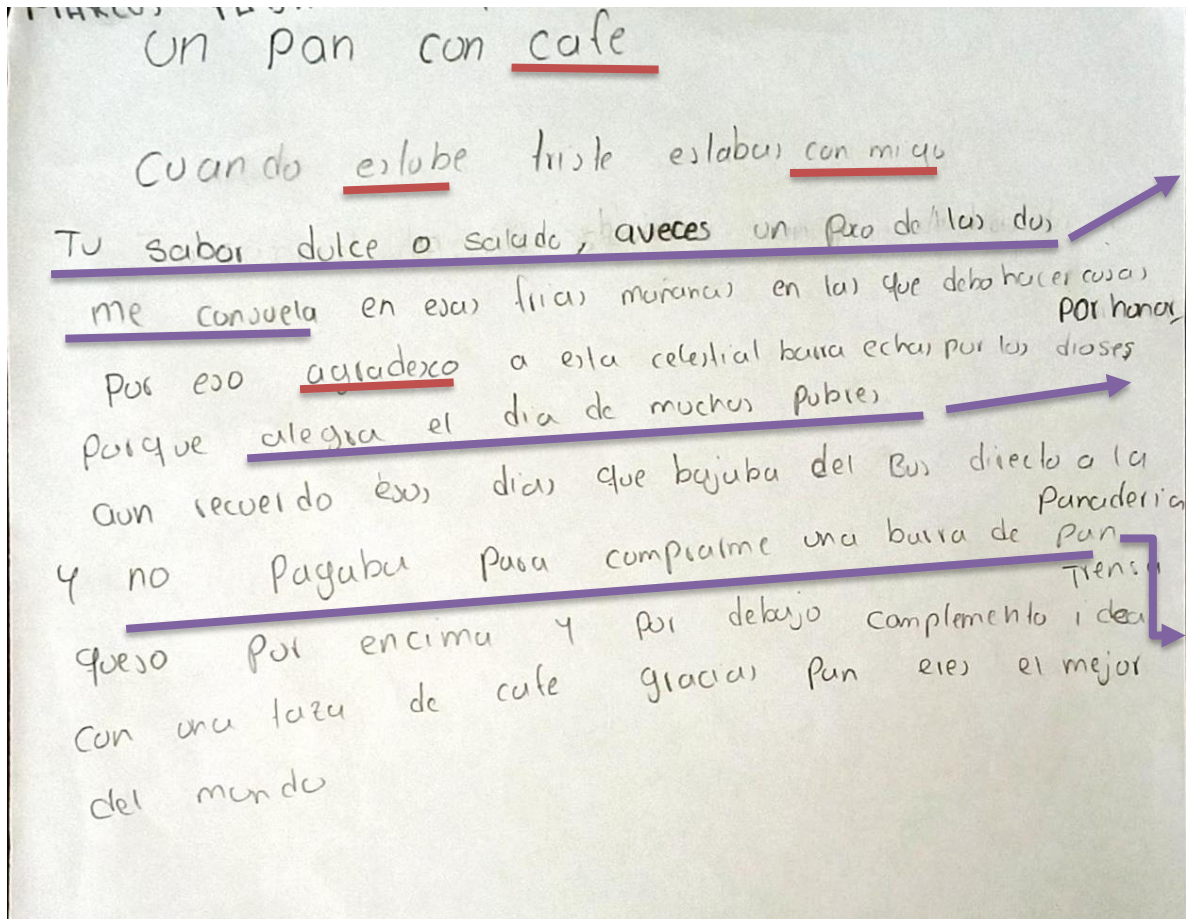 MARCOS
Un pan con cafe
Cuando estube triste estabas con migo
Tu sabor dulce o salado, aveces un poco de las dos
me consuela en esas frias mañanas en las que debo hacer cosas
por honor
Por eso agradesco a esta celestial barra echas por los dioses
porque alegra el dia de muchos pobres
aun recuerdo esos dias que bajaba del Bus directo a la
panaderia
y no pagaba para comprarme una barra de pan
Trensa
queso por encima y por debajo complemento idea
con una taza de cafe gracias pan eres el mejor
del mundo